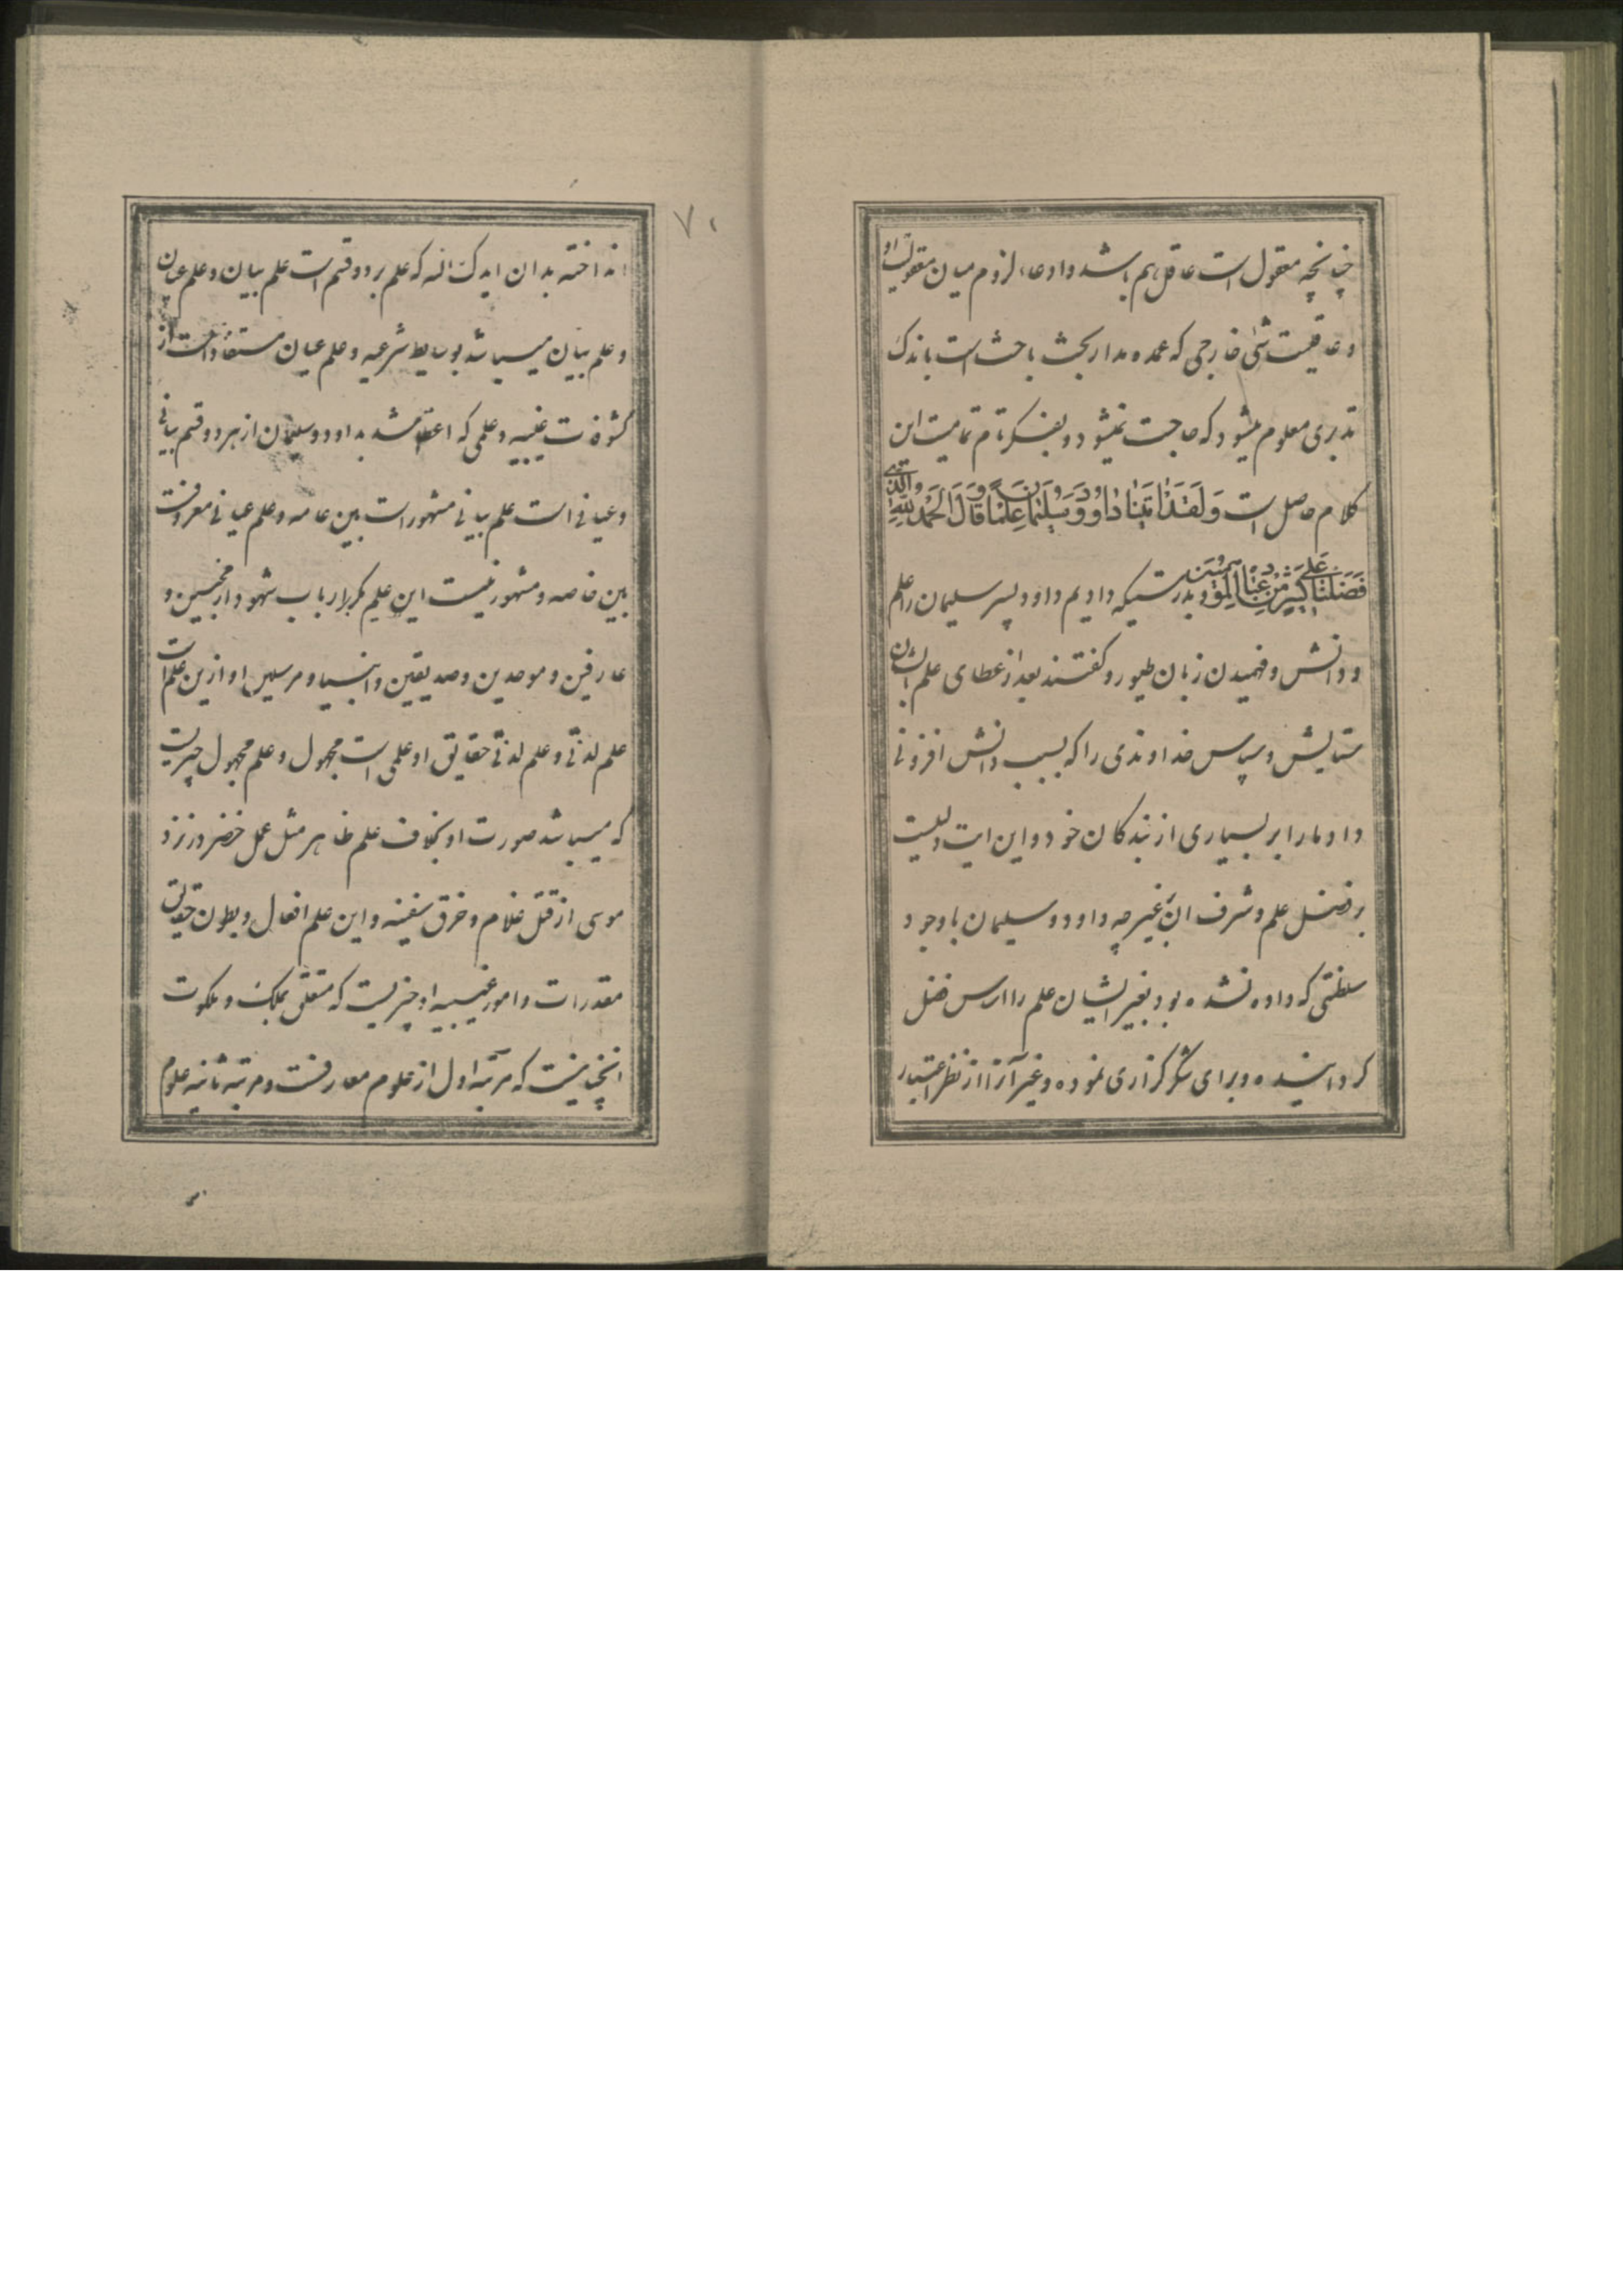 چنانچه معقول است عاقل هم باشد و ادعاء لزوم میان معقولیت او
و عاقلیت شئی خارجی که عمده مدار بحث باحث است باندک
تدبری معلوم میشود که حاجت نمیشود و بفکر تام تمامیت این
کلام حاصل است وَلَقَدْ اٰتَیْنٰا دٰاوُودَ وَسُلَیْمٰانَ عِلْمًا وَقٰالَا الْحَمْدُ لِلّٰهِ الَّذِی
فَضَّلَنَا عَلٰی کَثِیرٍ مِنْ عِبَادِهِ الْمُؤْمِنِینَ بدرستیکه دادیم داود و پسر سلیمان را علم
و دانش و فهمیدن زبان طیور و کفتند بعد از عطای علم ایشان
ستایش و سپاس خداوندی را که بسبب دانش افزونی
داد ما را بر بسیاری از بندکان خود و این ایت دلیلیست
بر فضل علم و شرف ان بغیر چه داود و سلیمان باوجود
سلطنتی که داده نشده بود بغیر ایشان علم را اساس فضل
کردانیده و برای شکر کزاری نموده و غیر آنرا از نظر اعتبار
۷۰
انداخته بدان ایدک الله که علم بر دو قسم است علم بیان و علم عیان
و علم بیان میباشد بوسایط شرعیه و علم عیان مستفاد است از
کشوفات غیبیه و علمی که اعطا شد بداود و سلیمان از هر دو قسم بیانی
و عیانی است علم بیانی مشهور است بین عامه و علم عیانی معروفست
بین خاصه و مشهور نیست این علم مکر برارباب شهود از محبین و
عارفین و موحدین و صدیقین و انبیا و مرسلین او ازین علم است
علم لدنی و علم لدنی حقایق او علمی است مجهول و علم مجهول چیزیست
که میباشد صورت او بخلاف علم ظاهر مثل عمل خضر در نزد
موسی از قتل غلام و خرق سفینه و این علم افعال و بطون حقایق
مقدرات و امور غیبیه او چیزیست که متعلق بملک و ملکوت
انچنانیست که مرتبه اول از علوم معارفست و مرتبه ثانیه علوم